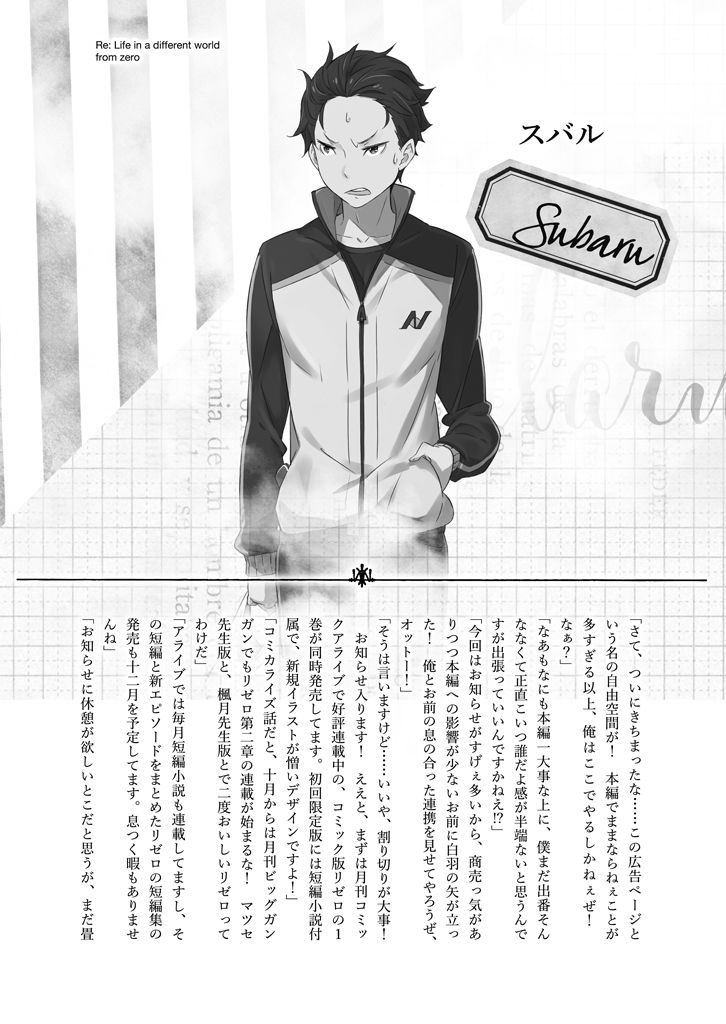 Re: Life in a different world
from zero
スバル
Subaru
「さて、ついにきちまったな……この広告ページと
いう名の自由空間が！　本編でままならねぇことが
多すぎる以上、俺はここでやるしかねぇぜ！
なぁ？」
「なあもなにも本編一大事な上に、僕まだ出番そん
ななくて正直こいつ誰だよ感が半端ないと思うんで
すが出張っていいんですかねえ!?」
「今回はお知らせがすげぇ多いから、商売っ気があ
りつつ本編への影響が少ないお前に白羽の矢が立っ
た！　俺とお前の息の合った連携を見せてやろうぜ、
オットー！」
「そうは言いますけど……いいや、割り切りが大事！
　お知らせ入ります！　ええと、まずは月刊コミッ
クアライブで好評連載中の、コミック版リゼロの１
巻が同時発売してます。初回限定版には短編小説付
属で、新規イラストが憎いデザインですよ！」
「コミカライズ話だと、十月からは月刊ビッグガン
ガンでもリゼロ第二章の連載が始まるな！　マツセ
先生版と、楓月先生版とで二度おいしいリゼロって
わけだ」
「アライブでは毎月短編小説も連載してますし、そ
の短編と新エピソードをまとめたリゼロの短編集の
発売も十二月を予定してます。息つく暇もありませ
んね」
「お知らせに休憩が欲しいとこだと思うが、まだ畳